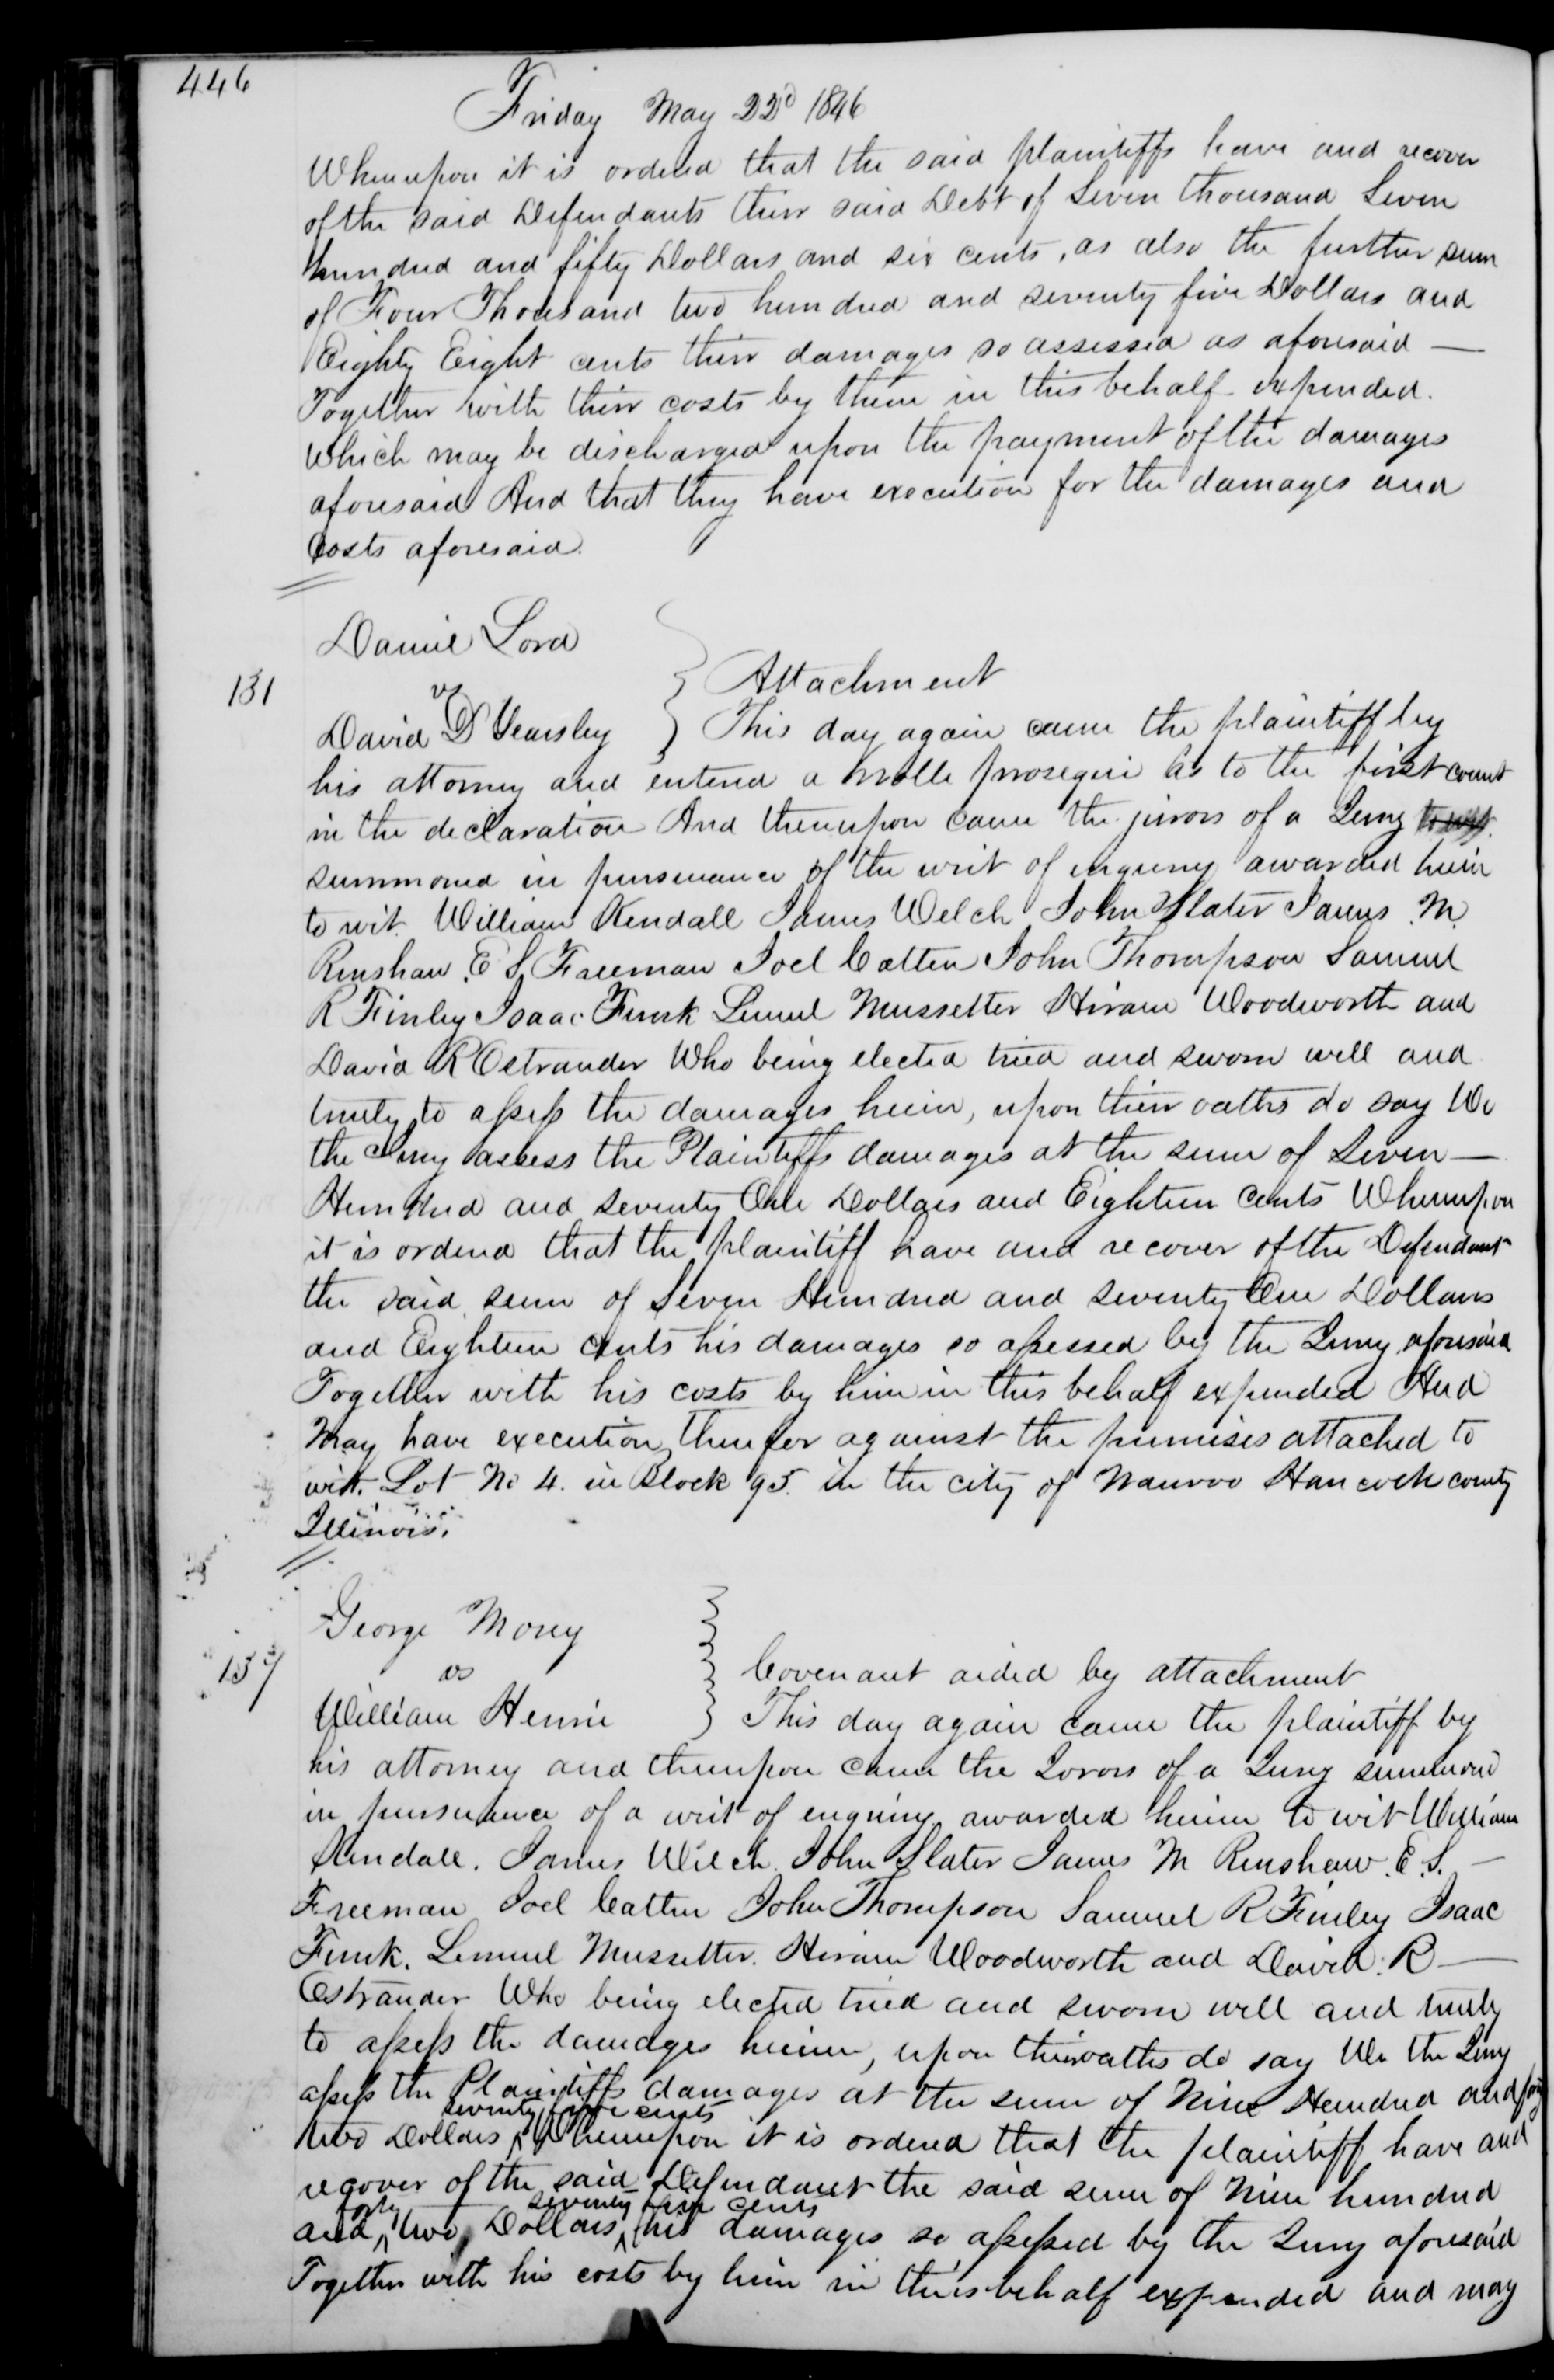 446
Friday May 22d 1846
Whereupon it is ordered that the said plaintiffs have and recover
of the said Defendants their said Debt of Seven thousand Seven
hundred and fifty Dollars and six cents, as also the further sum
of Four Thousand two hundred and seventy five Dollars and
Eighty Eight cents their damages so assessed as aforesaid —
Together with their costs by them in this behalf expended.
which may be discharged upon the payment of the damages
aforesaid And that they have execution for the damages and
Costs aforesaid.
Daniel Lord
131
vs
Attachment
David D Yearsley } This day again came the plaintiff by
his attorney and entered a nolle prosequi as to the first count
in the declaration And thereupon came the jurors of a Jury to wit.
summoned in pursuance of the writ of enquiry awarded herein
to wit. William Kendall James Welch John Slater James M.
Renshaw. E S. Freeman Joel Catlin John Thompson Samuel
R Finley Isaac Funk Lemuel Mussetter Hiram Woodworth and
David R Ostrander Who being elected tried and sworn well and
truly to assess the damages herein, upon their oaths do say We
the Jury assess the Plaintiffs damages at the sum of Seven —
Hundred and seventy One Dollars and Eighteen Cents Whereupon
it is ordered that the plaintiff have and recover of the Defendant
the said sum of Seven Hundred and seventy One Dollars
and Eighteen cents his damages so assessed by the Jury aforesaid
Together with his costs by him in this behalf expended And
May have execution therefor against the premises attached to
wit. Lot No 4. in Block 95. in the city of Nauvoo Hancock county
Illinois.
George Morey
137
vs
Covenant aided by attachment
William Henrie } This day again came the plaintiff by
his attorney and thereupon came the Jurors of a Jury summoned
in pursuance of a writ of enquiry awarded herein to wit William
Kendall. James Welch. John Slater James M Renshaw. E. S. —
Freeman Joel Catlin John Thompson Samuel R Finley Isaac
Funk. Lemuel Mussetter. Hiram Woodworth and David. R —
Ostrander Who being elected tried and sworn well and truly
to assess the damages herein, upon their oaths do say We the Jury
assess the Plaintiffs damages at the sum of Nine Hundred and forty
seventy five cents
two Dollars ^ Whereupon it is ordered that the plaintiff have and
recover of the said Defendant the said sum of Nine hundred
forty seventy five cents
and ^ two Dollars ^ his damages so assessed by the Jury aforesaid
Together with his costs by him in this behalf expended and may